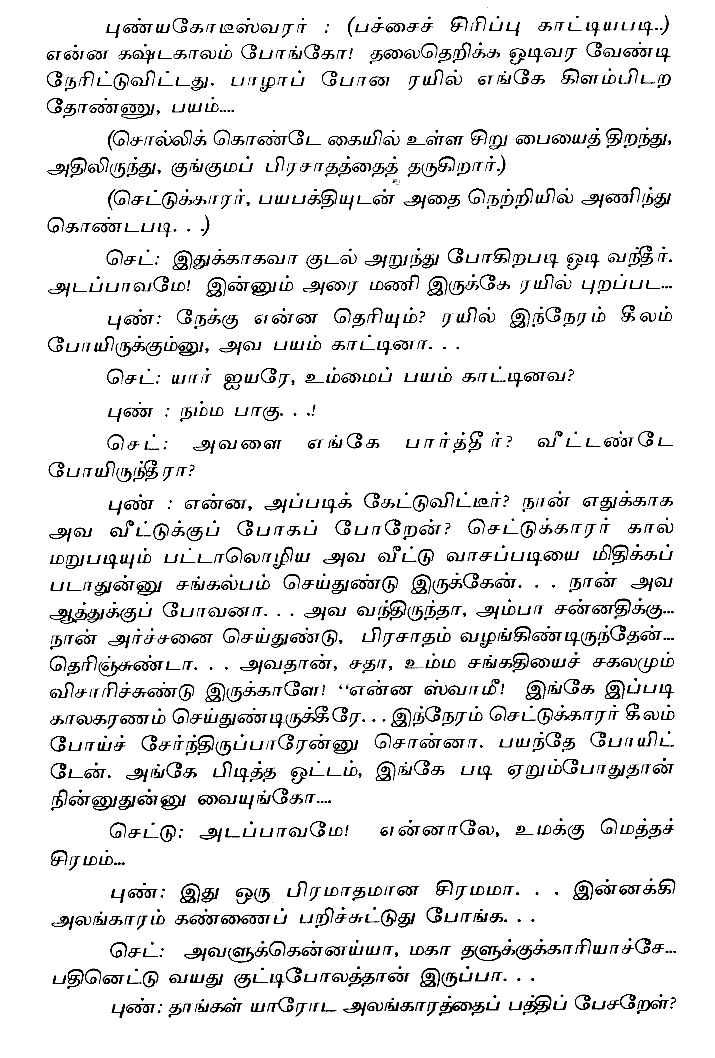 புண்யகோடீஸ்வரர் : (பச்சைச் சிரிப்பு காட்டியபடி..)
என்ன கஷ்டகாலம் போங்கோ! தலைதெறிக்க ஓடிவர வேண்டி
நேரிட்டுவிட்டது. பாழாப் போன ரயில் எங்கே கிளம்பிடற
தோண்ணு, பயம்....
(சொல்லிக் கொண்டே கையில் உள்ள சிறு பையைத் திறந்து,
அதிலிருந்து, குங்குமப் பிரசாதத்தைத் தருகிறார்.)
(செட்டுக்காரர், பயபக்தியுடன் அதை நெற்றியில் அணிந்து
கொண்டபடி. . .)
செட்: இதுக்காகவா குடல் அறுந்து போகிறபடி ஓடி வந்தீர்.
அடப்பாவமே! இன்னும் அரை மணி இருக்கே ரயில் புறப்பட...
புண்: நேக்கு என்ன தெரியும்? ரயில் இந்நேரம் கீலம்
போயிருக்கும்னு, அவ பயம் காட்டினா. . .
செட்: யார் ஐயரே, உம்மைப் பயம் காட்டினவ?
புண் : நம்ம பாகு. . .!
செட்: அவளை எங்கே பார்த்தீர்? வீட்டண்டே
போயிருந்தீரா?
புண் : என்ன, அப்படிக் கேட்டுவிட்டீர்? நான் எதுக்காக
அவ வீட்டுக்குப் போகப் போறேன்? செட்டுக்காரர் கால்
மறுபடியும் பட்டாலொழிய அவ வீட்டு வாசப்படியை மிதிக்கப்
படாதுன்னு சங்கல்பம் செய்துண்டு இருக்கேன். . . நான் அவ
ஆத்துக்குப் போவனா. . . அவ வந்திருந்தா, அம்பா சன்னதிக்கு...
நான் அர்ச்சனை செய்துண்டு, பிரசாதம் வழங்கிண்டிருந்தேன்...
தெரிஞ்சுண்டா. . . அவதான், சதா, உம்ம சங்கதியைச் சகலமும்
விசாரிச்சுண்டு இருக்காளே! “என்ன ஸ்வாமீ! இங்கே இப்படி
காலகரணம் செய்துண்டிருக்கீரே. . . இந்நேரம் செட்டுக்காரர் கீலம்
போய்ச் சேர்ந்திருப்பாரேன்னு சொன்னா. பயந்தே போயிட்
டேன். அங்கே பிடித்த ஒட்டம், இங்கே படி ஏறும்போதுதான்
நின்னுதுன்னு வையுங்கோ....
செட்டு: அடப்பாவமே! என்னாலே, உமக்கு மெத்தச்
சிரமம்...
புண்: இது ஒரு பிரமாதமான சிரமமா. . . இன்னக்கி
அலங்காரம் கண்ணைப் பறிச்சுட்டுது போங்க. . .
செட்: அவளுக்கென்னய்யா, மகா தளுக்குக்காரியாச்சே...
பதினெட்டு வயது குட்டிபோலத்தான் இருப்பா. . .
புண்: தாங்கள் யாரோட அலங்காரத்தைப் பத்திப் பேசறேள்?